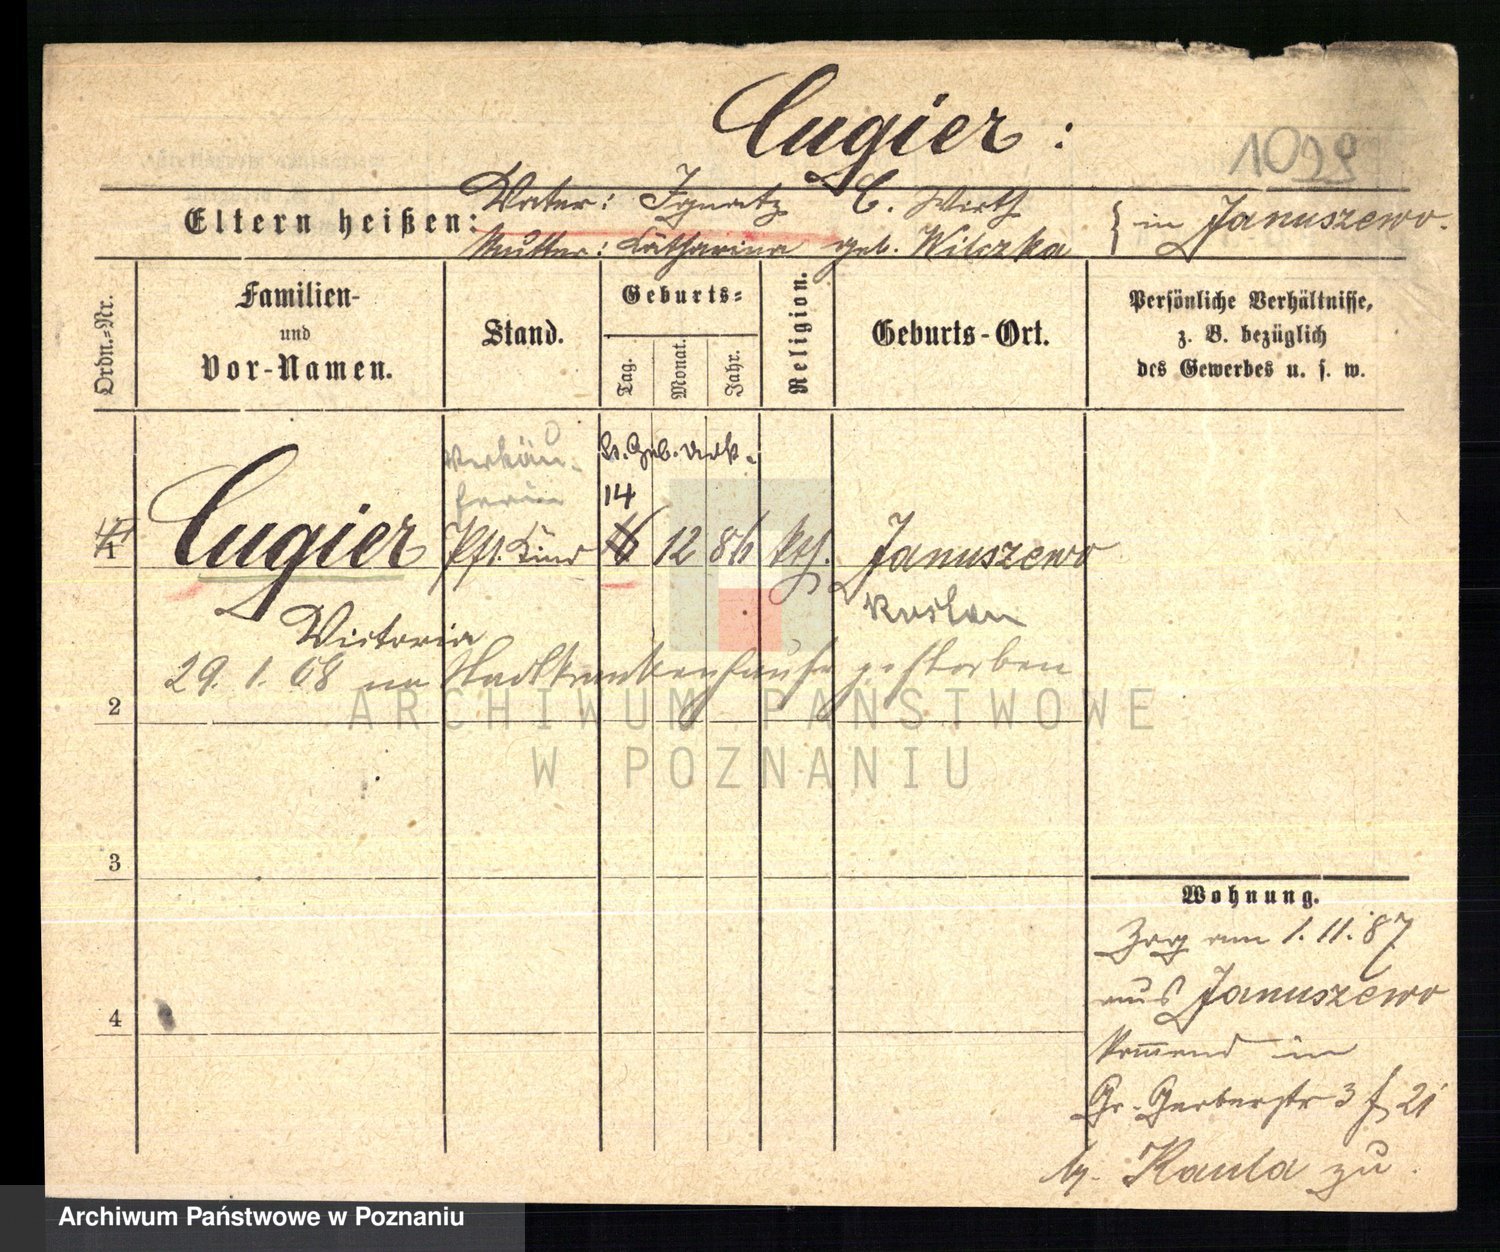 Cugier:
1029
Eltern heißen:
Vater: Ignatz C. Wirth
Mutter: Katharina geb. Wilczka
} in Januszewo.
Ordn.-Nr.
Familien-
und
Vor-Namen.
Stand.
Geburts-
Tag.
Monat.
Jahr.
Religion.
Geburts-Ort.
Persönliche Verhältnisse,
z. B. bezüglich
des Gewerbes u. s. w.
Verkäu-
ferin
Geb.
14
1
Cugier
Pfl. Kind
12 86 kth.
Januszewo
Victoria
29. 1. 08 im Stadtkrankenhause gestorben
2
3
4
Wohnung.
Zog am 1. 11. 87
aus Januszewo
kommend in
Gr. Gerberstr 3
b. Kaula zu.
ARCHIWUM PAŃSTWOWE
W POZNANIU
Archiwum Państwowe w Poznaniu